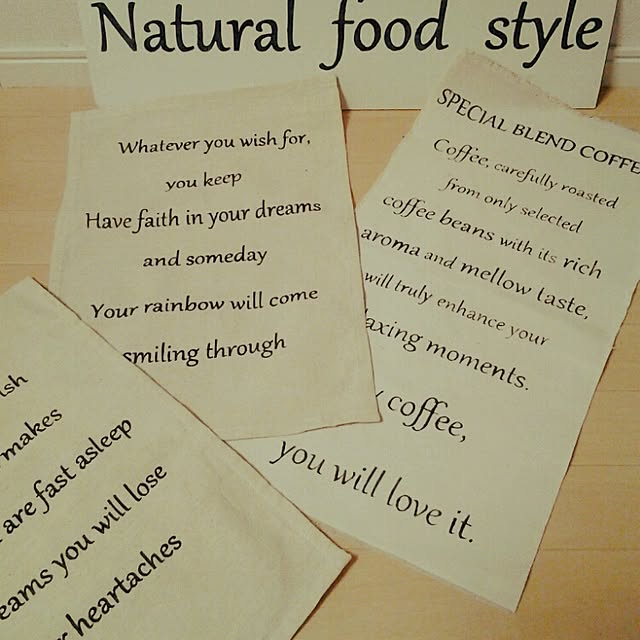 Natural food style
Whatever you wish for,
you keep
Have faith in your dreams
and someday
Your rainbow will come
smiling through
SPECIAL BLEND COFFE
Coffee, carefully roasted
from only selected
coffee beans with its rich
aroma and mellow taste,
will truly enhance your
laxing moments.
coffee,
you will love it.
ish
makes
are fast asleep
eams you will lose
heartaches